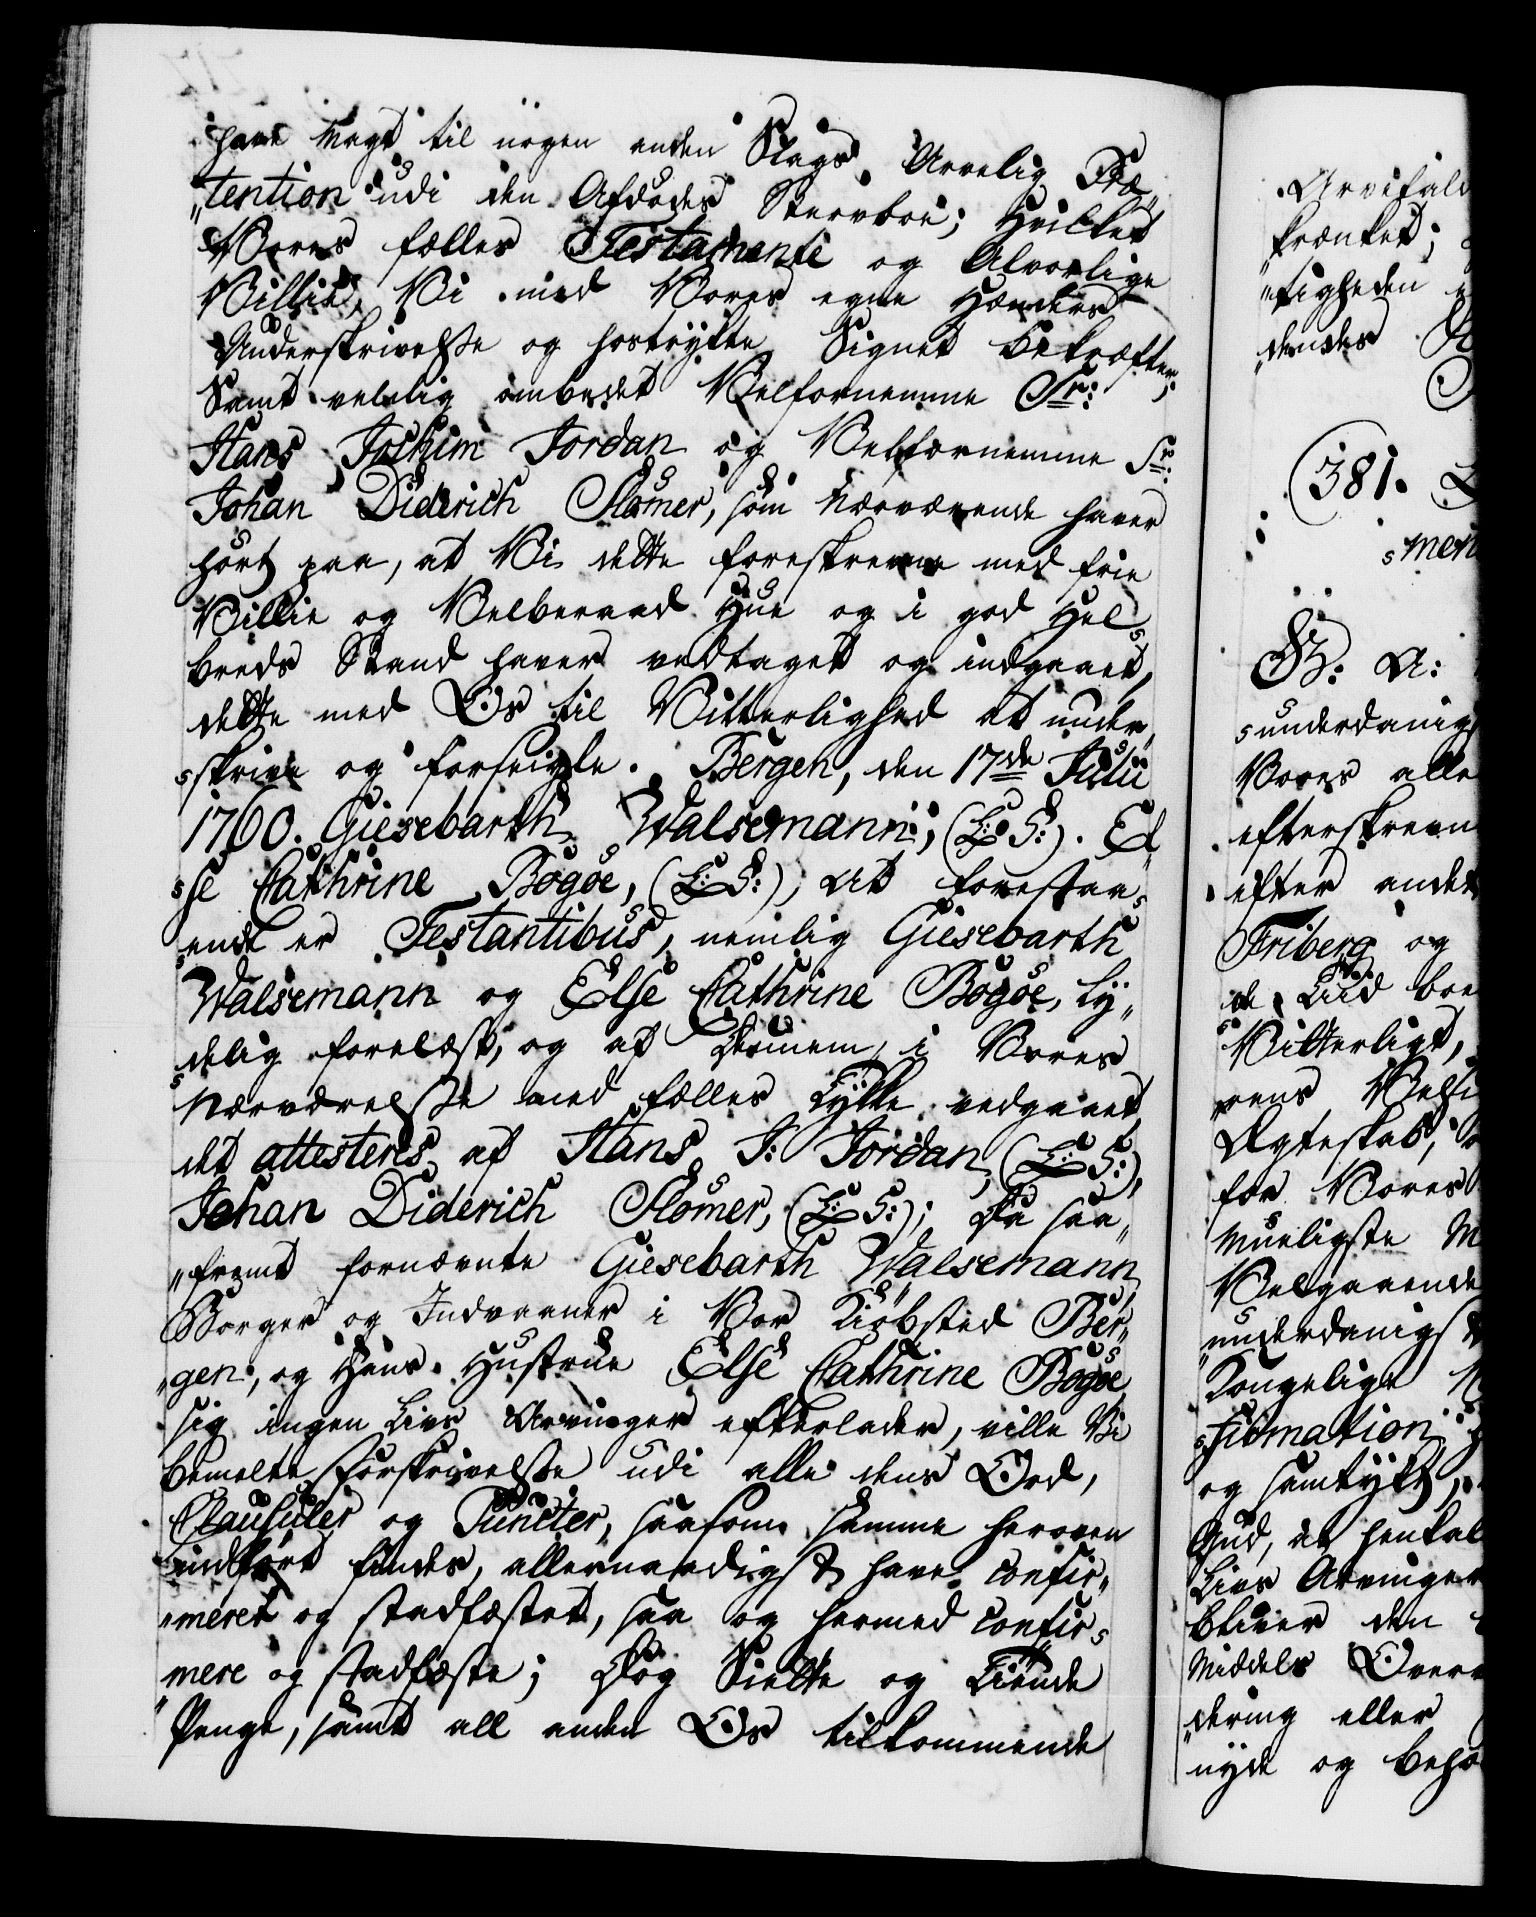 have Magt til nogen anden Slags Arvelig Præ„
„tention udi den Afdødes Stervboe; Hvilket
Vores fælles Testamente og Alvorlige
Villie, Vi med Vores egne Hænders
Underskrivelse og hostrykte Signet bekræfter,
Samt venlig ombedet Velfornemme Sr:
Hans Jochim Jordan og Velfornemme Sr:
Johan Diderich Slømer, som Nærværende haver
hørt paa, at Vi dette foreskrevne med frie
Villie og Velberaad Hue og i god Hel„
breds Stand haver vedtaget og indgaaet,
dette med Os til Vitterlighed at under„
„skrive og forseigle. Bergen, den 17de Julii
1760. Giesebarth Walsemann, (L:S:). El„
„se Cathrine Bøgøe, (L:S:), At forestaa„
„ende er Testantibus, nemlig Giesebarth
Walsemann og Else Cathrine Bøgøe, ty„
„delig forelæst, og af Dennem i Vores
Nærværelse med fælles Lykke vedgaaet,
det attesteres af Hans J: Jordan, (L:S:),
Johan Diderich Slømer, (L:S:); Da saa„
„fremt fornævnte Giesebarth Walsemann,
Borger og Indvaaner i Vor Kiøbsted Ber„
„gen, og Hans Hustrue Else Cathrine Bøgøe
sig ingen Livs Arvinger efterlader, ville Vi
bemelte Forskrivelse udi alle dens Ord,
Clausuler og Puncter, saasom samme heroven
indført findes, allernaadigst have confir„
„meret og stadfæstet, saa og hermed confir„
„mere og stadfæste; Dog Siette og Tiende
Penge, samt all anden Os tilkommende
Arvefald
krænket;
„tigheden
dendes
(381.
„men
Gr: A:
„underdanigst
Vores alle
efterskrevn
efter andet
Friberg og
de Lud boe
Vitterligt,
rens Velf
Ægteskab,
for Vores
mueligste M
Velgaaende
„underdanigst
Kongelige
„firmation
og samtykt,
Gud, at henkal
Livs Arvinger
bliver den
Middels Over
„dering eller
nyde og beho